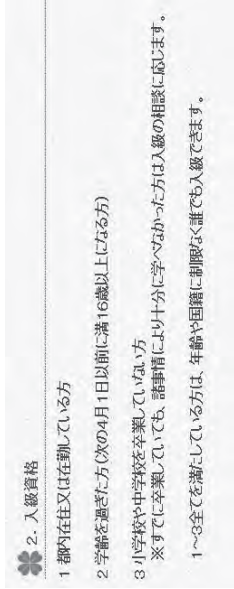 2. 入級資格
1 都内在住又は在勤している方
2 学齢を過ぎた方(次の4月1日以前に満16歳以上になる方)
3 小学校や中学校を卒業していない方
※すでに卒業していても、諸事情により十分に学べなかった方は入級の相談に応じます。
1〜3全てを満たしている方は、年齢や国籍に制限なく誰でも入級できます。